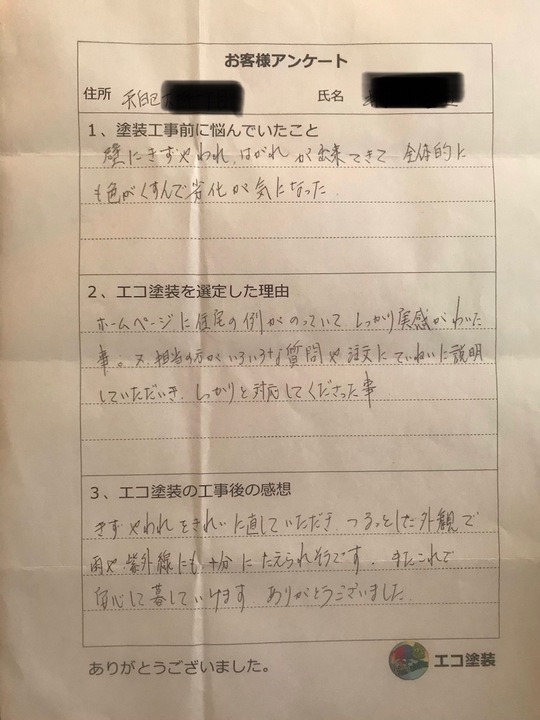 お客様アンケート
住所 天白区 氏名
1、塗装工事前に悩んでいたこと
壁にきずやわれ、はがれが出来てきて 全体的に
も色がくすんで劣化が気になった.
2、エコ塗装を選定した理由
ホームページに住宅の例がのっていて しっかり実感がわいた
事。又、担当の方がいろいろな質問や注文にていねいに説明
していただいき、しっかりと対応してくださった事
3、エコ塗装の工事後の感想
きずやわれをきれいに直していただき つるっとした外観で
雨や紫外線にも十分にたえられそうです. またこれで
安心して暮していけます ありがとうございました.
ありがとうございました。
エコ塗装